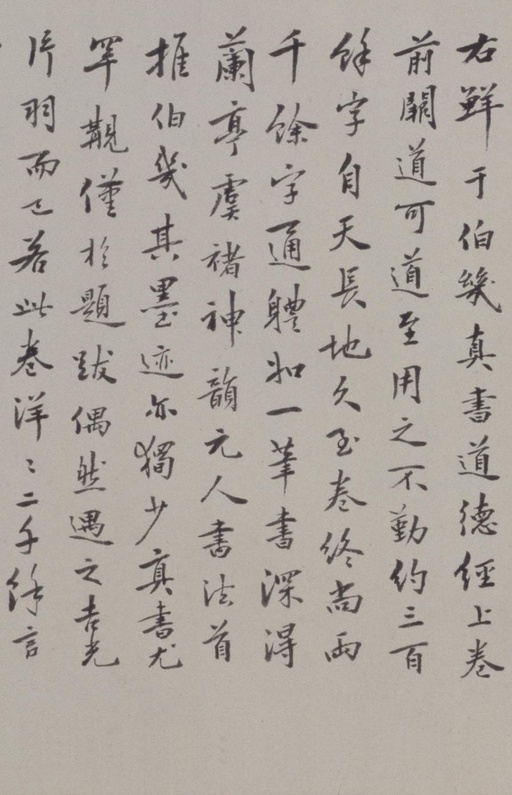 右鮮于伯幾真書道德經上卷
前闕道可道至用之不勤約三百
餘字自天長地久至卷終尚兩
千餘字通體如一筆書深得
蘭亭虞褚神韻元人書法首
推伯幾其墨迹亦獨少真書尤
罕覯僅於題跋偶然遇之吉光
片羽而已若此卷洋〻二千餘言